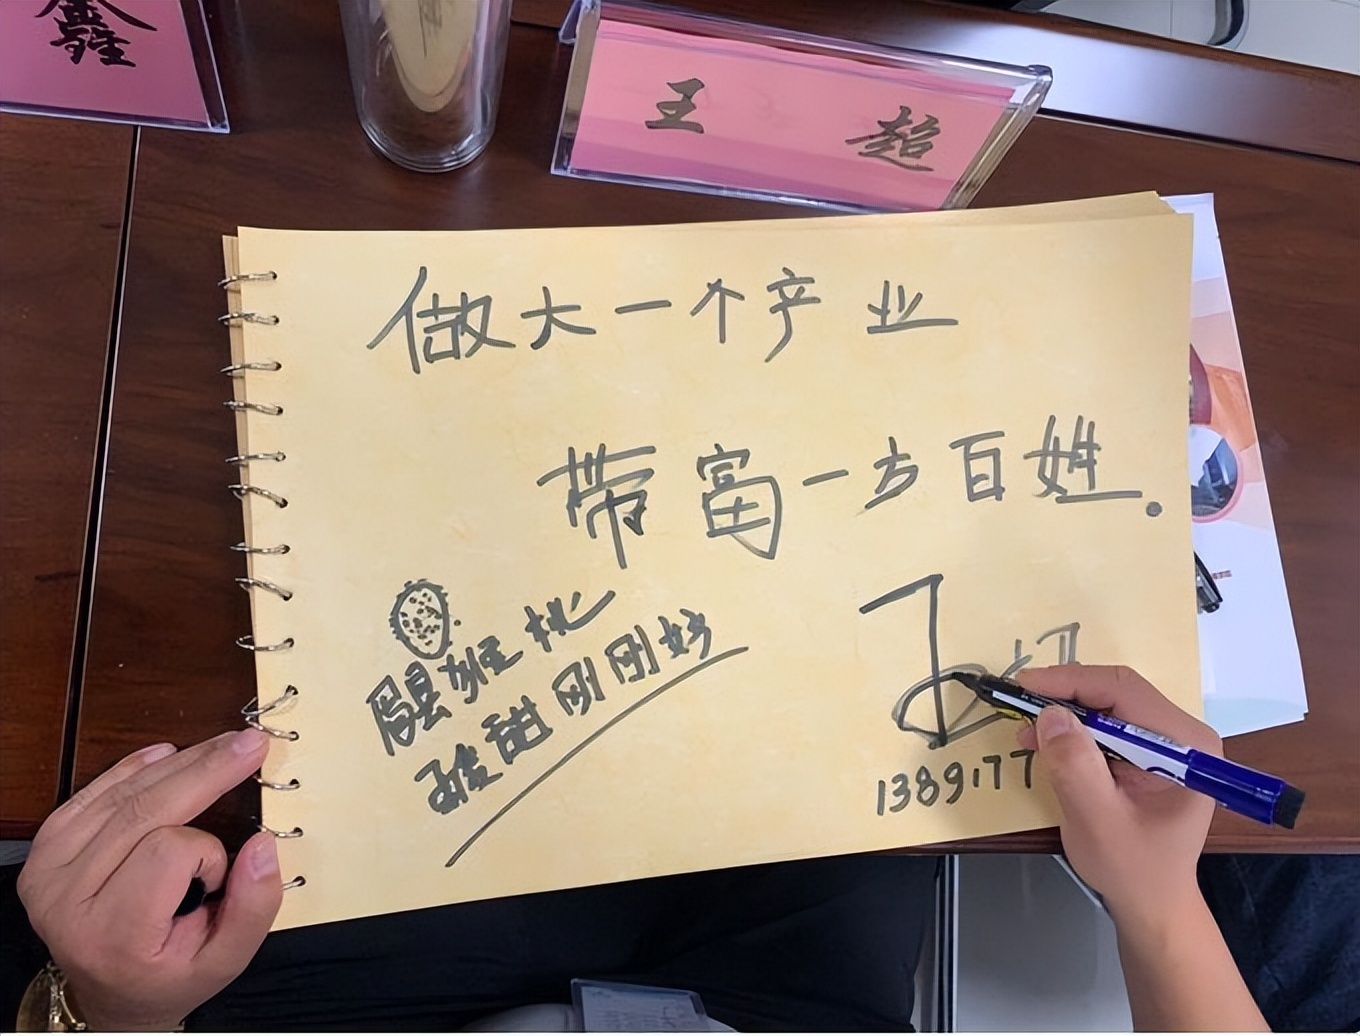 鑫
王 超
做大一个产业
带富一方百姓.
眉县 桃
酸甜刚刚好
1389177